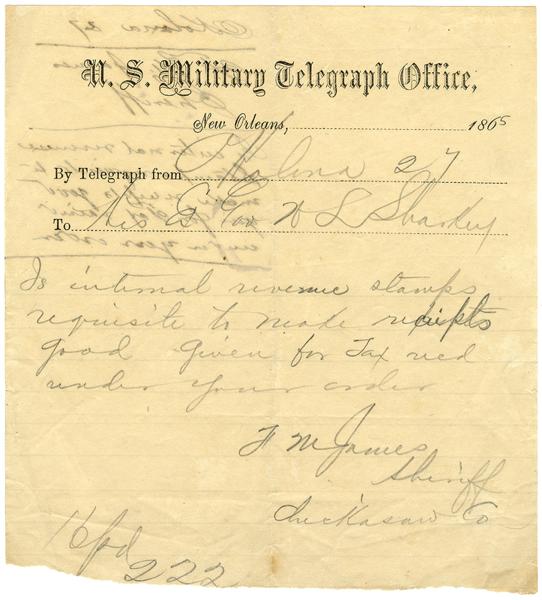 U. S. Military Telegraph Office,
New Orleans, 1865
By Telegraph from Okolona 27
To His E Gov W L Sharkey
Is internal revenue stamps
requisite to make receipts
good given for Tax recd
under your order
F M James
Sheriff
Chickasaw Co
16 pd
222